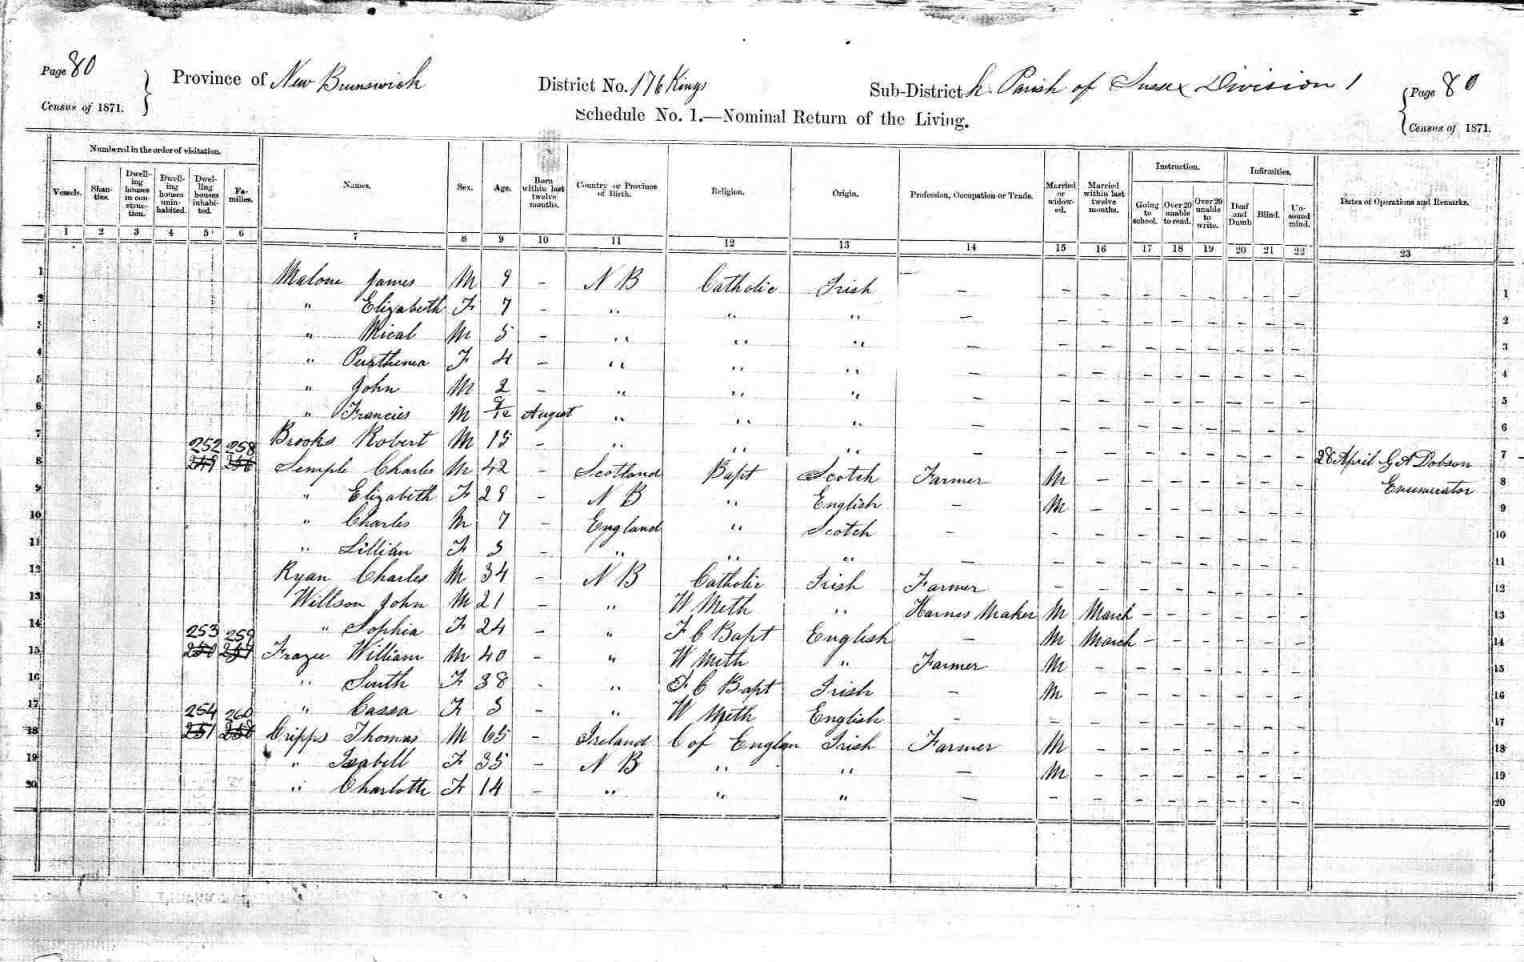 Page 80 Province of New Brunswick District No. 176 Kings Sub-District h Parish of Sussex Division 1 Page 80
Census of 1871. Schedule No. 1.—Nominal Return of the Living. Census of 1871.
Numbered in the order of visitation. Instruction. Infirmities.
Vessels. Shan-ties. Dwell-ing houses in con-struc-tion. Dwell-ing houses unin-habited. Dwel-ling houses inhabi-ted. Fa-milies. Names. Sex. Age. Born within last twelve months. Country or Province of Birth. Religion. Origin. Profession, Occupation or Trade. Married or widow-ed. Married within last twelve months. Going to school. Over 20 unable to read. Over 20 unable to write. Deaf and Dumb Blind. Un-sound mind. Dates of Operations and Remarks.
1 2 3 4 5 6 7 8 9 10 11 12 13 14 15 16 17 18 19 20 21 22 23
1 Malone James M 9 – N B Catholic Irish – – – – – – – – – 1
2 " Elizabeth F 7 – " " " – – – – – – – – – 2
3 " Mical M 5 – " " " – – – – – – – – – 3
4 " F 4 – " " " – – – – – – – – – 4
5 " John M 2 – " " " – – – – – – – – – 5
6 " Francies M 9/12 August " " " – – – – – – – – – 6
7 Brooks Robert M 15 – " " " – – – – – – – – – 7
8 252 258 249 256 Semple Charles M 42 – Scotland Bapt Scotch Farmer M – – – – – – – 28 April G A Dobson 8
9 " Elizabeth F 29 – N B " English – M – – – – – – – Enumerator 9
10 " Charles M 7 – England " Scotch – – – – – – – – – 10
11 " Lillian F 3 – " " " – – – – – – – – – 11
12 Ryan Charles M 34 – N B Catholic Irish Farmer – – – – – – – – 12
13 Willson John M 21 – " W Meth " Harnes Maker M March – – – – – – 13
14 " Sophia F 24 – " F C Bapt English – M March – – – – – – 14
15 253 259 250 257 Frazee William M 40 – " W Meth " Farmer M – – – – – – – 15
16 " F 38 – " F C Bapt Irish – M – – – – – – – 16
17 " Cassa F 3 – " W Meth English – – – – – – – – – 17
18 254 260 251 258 Cripps Thomas M 65 – Ireland C of Englan Irish Farmer M – – – – – – – 18
19 " Isabell F 35 – N B " " – M – – – – – – – 19
20 " Charlotte F 14 – " " " – – – – – – – – – 20